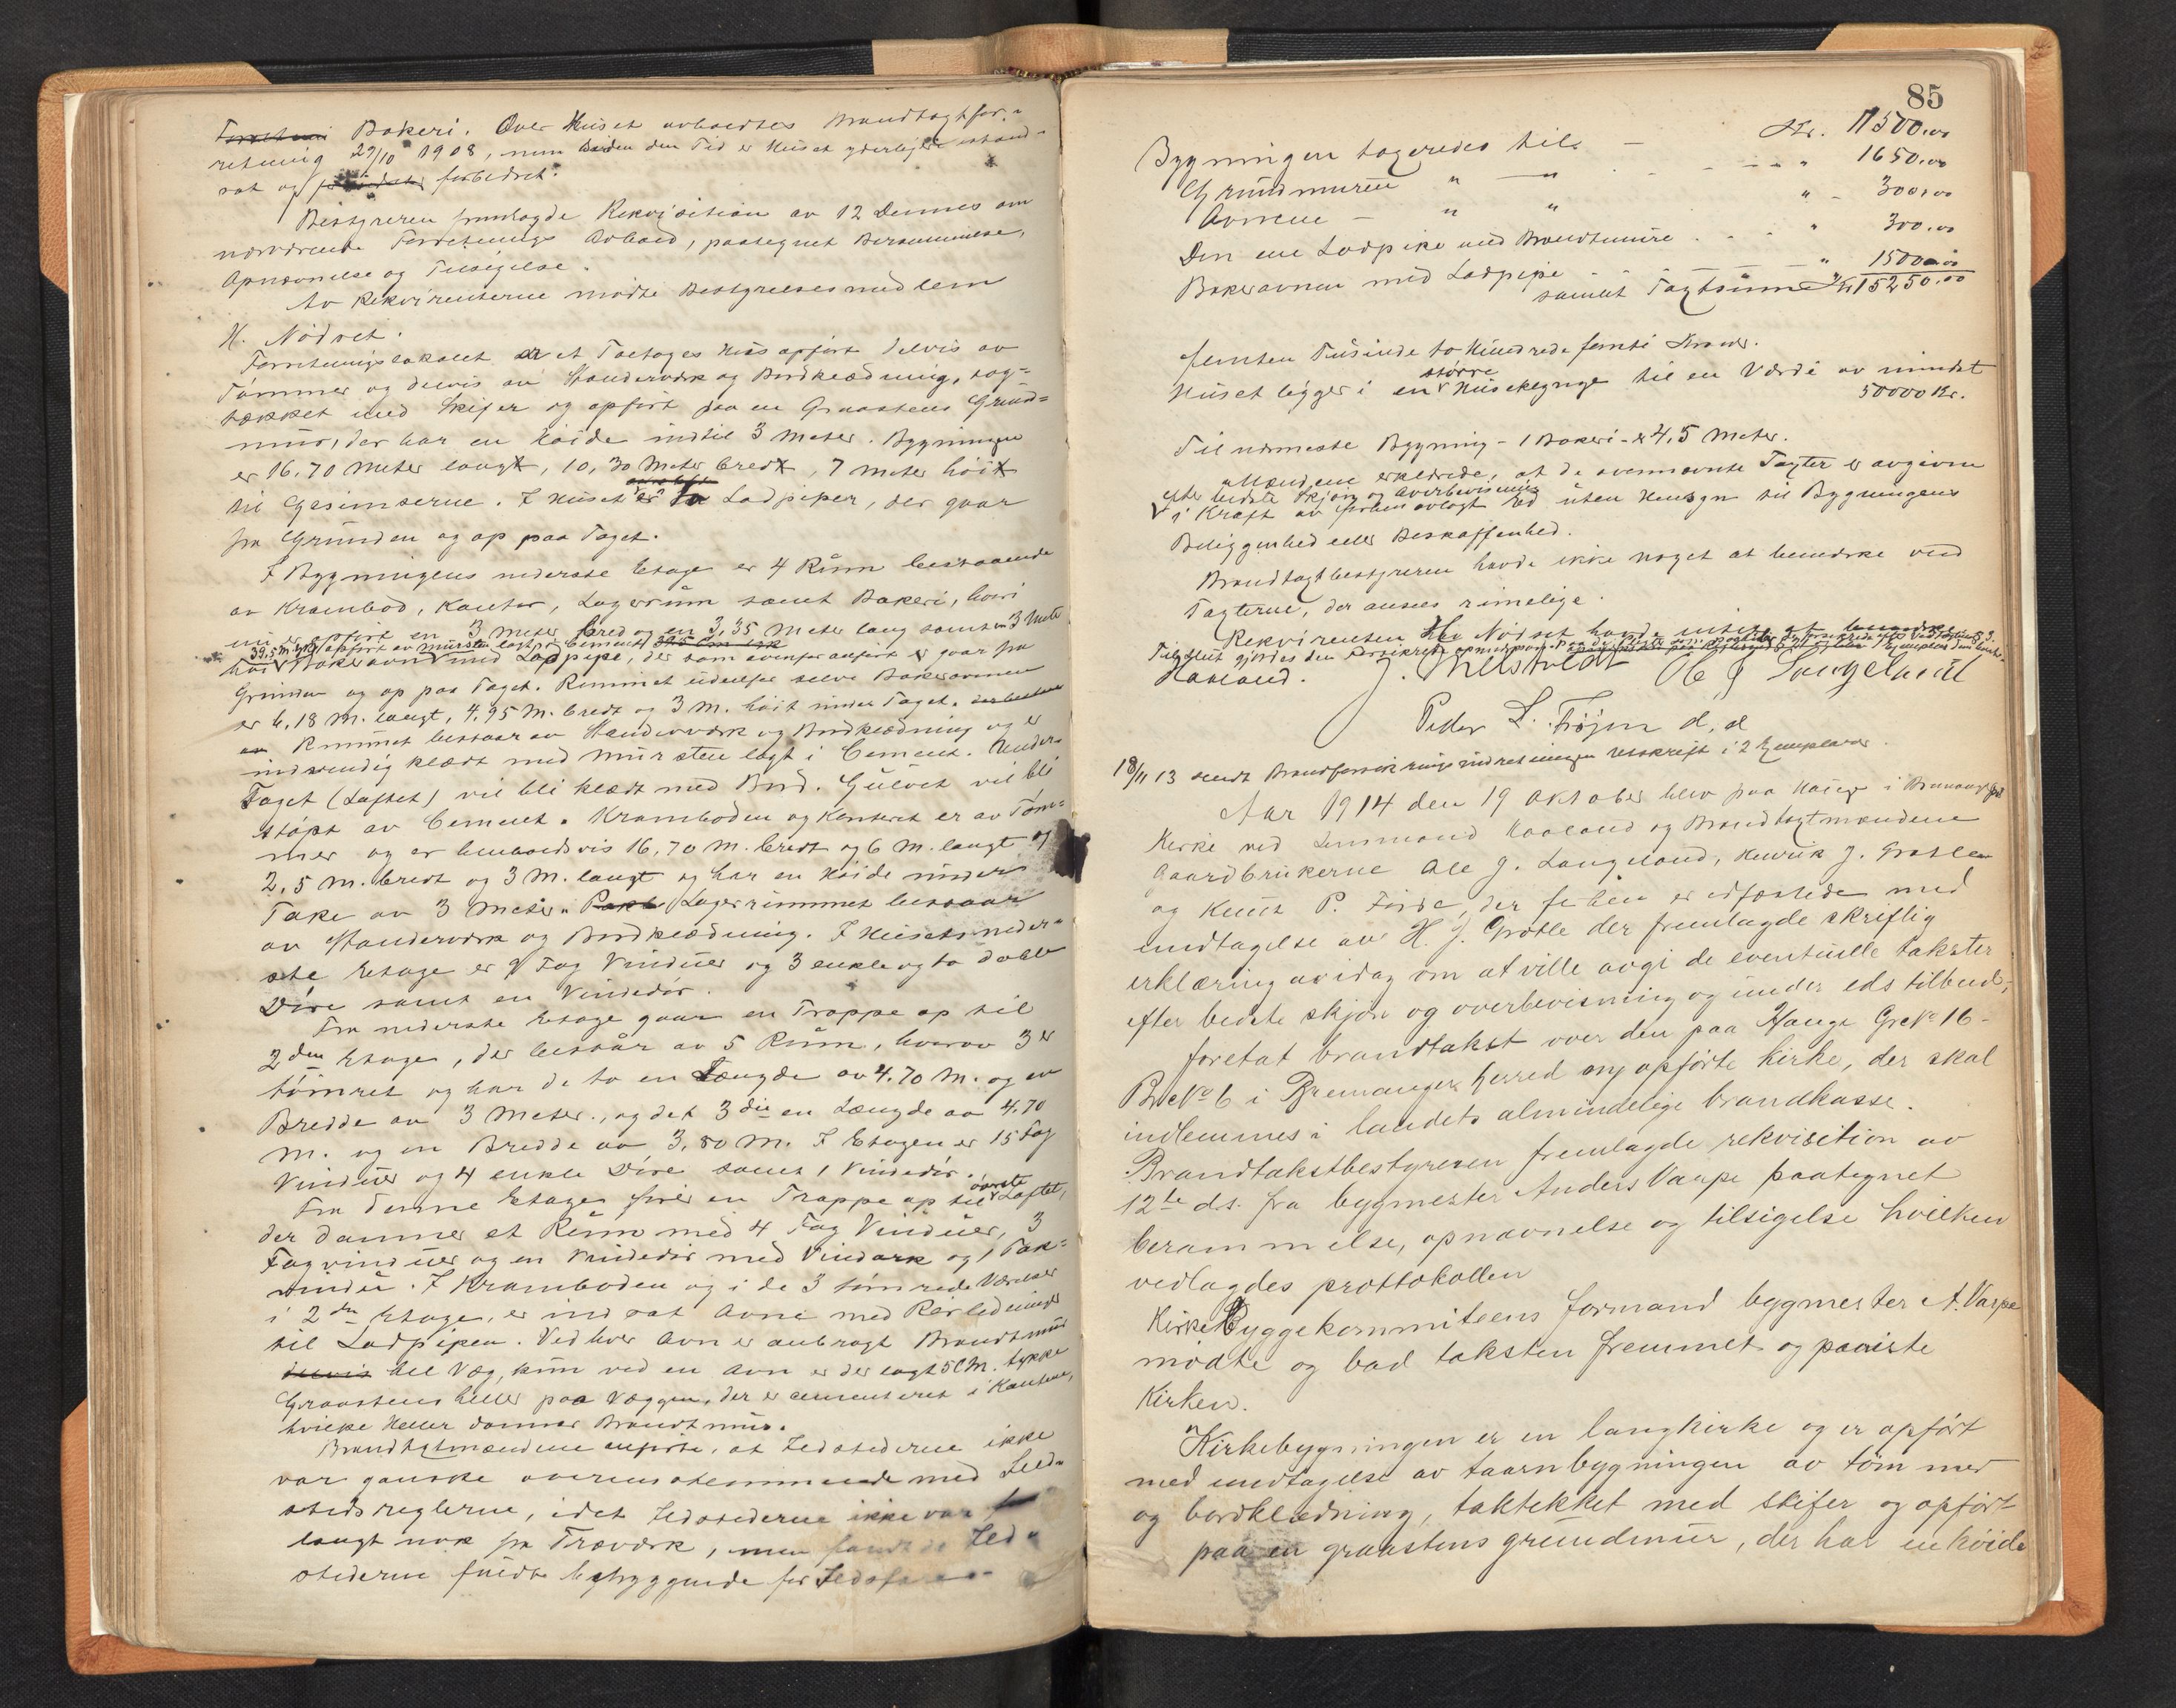 Bakeri. Over Huset avholdtes Brandtagtfor-
retning 29/10 1908, men siden den Tid er Huset yderligere
sat og forbedret.
Bestyreren fremlagde Rekvisition av 12 Dennes om
nærværende Forretnings Avhold, paategnet Berammelse,
Opnævnelse og Tilsigelse.
Av Rekvirenterne mødte Bestyrelsesmedlem
H. Nødset.
Forretningslokalet er et Toetages Hus opført delvis av
Tømmer og delvis av Standerværk og Bordklædning, tag-
tækket med Skifer og opført paa en Graastens Grund-
mur, der har en Høide indtil 3 Meter. Bygningen
er 16,70 Meter langt, 10,30 Meter bredt, 7 Meter høit
til Gesimserne. I Huset er Ladpiper, der gaar
fra Grunden og op paa Taget.
I Bygningens nederste Etage er 4 Rum bestaaende
av Krambod, Kontor, Lagerrum samt Bakeri, hvori
nu er opført en 3 Meter bred og en 3,35 Meter lang samt en 3 Meter
opført av Mursten lagt i Cement
høi Bakerovn med Ladpipe, der som ovenfor anført gaar fra
Grunden og op paa Taget. Rummet udenfor selve Bakerovnen
er 6,18 M. langt, 4,95 M. bredt og 3 M. høit under Taget.
Rummet bestaar av Standerværk og Bordklædning og er
indvendig klædt med Mursten lagt i Cement. Under
Taget (Loftet) vil bli klædt med Bord. Gulvet vil bli
støpt av Cement. Kramboden og Kontoret er av Tøm-
mer og er henholdsvis 16,70 M. bredt og 6 M. langt og
2,5 M. bredt og 3 M. langt og har en Høide under
Taket av 3 Meter. Lagerrummet bestaar
av Standerværk og Bordklædning. I Husets neder-
ste Etage er 9 Fag Vinduer og 3 enkle og to doble
Døre samt en Vinddør.
Fra nederste Etage gaar en Trappe op til
2den Etage, der bestaar av 5 Rum, hvorav 3 er
tømret og har de to en Længde av 4.70 M. og en
Bredde av 3 Meter, og det 3die en Længde av 4.70
M. og en Bredde av 3,80 M. I Etagen er 15 Fag
Vinduer og 4 enkle Døre samt 1 Vinddør.
Fra denne Etage fører en Trappe op til øverste Loftet,
der danner et Rum med 4 Fag Vinduer, 3
Fag vinduer og en Vinddør med Vindark og 1 Tak-
vindu. I Kramboden og i de 3 tømrede Værelser
i 2den Etage, er indsat Ovne med Rørledninger
til Ladpipen. Ved hver Ovn er anbragt Brandmur
til Væg, kun ved en Ovn er der lagt 5 CM. tykke
Graastens heller paa Væggen, der er cementeret i Kanterne,
hvilke Heller danner Brandtmur.
Brandtagtmændene anførte, at Ildstederne ikke
var ganske overensstemmende med Ild-
stedsreglerne, idet Ildstederne ikke var
langt nok fra Træværk, men fandt de Ild-
stederne fuldt betryggende for
85
Bygningen tageredes til - Kr. 11500.00
Grundmuren " - " " 1650.00
Ovnene - " " " 300.00
Den ene Ladpipe med Brandmure " 300.00
Bakerovnen med Ladpipe " 1500.00
samlet Tagtsum Kr 15250.00
femten Tusinde to Hundrede femti Kroner.
Huset ligger i en større Husklynge til en Værdi av mindst
50000 Kr.
Til nærmeste Bygning - 1 Bakeri - er 4,5 Meter.
Mændene erklærede, at de ovennævnte Tagter er avgivne
efter bedste Skjøn og Overbevisning
i Kraft av forhen avlagt Ed uten Hensyn til Bygningens
Beliggenhed eller Beskaffenhed.
Brandtagtbestyreren havde ikke noget at bemerke ved
Tagterne, der ansees rimelige.
Rekvirenten H. Nødset havde intet at bemerke.
Tilslut gjordes den
Haaland. Ole J. Langeland
Peder L.
18/11 13 sendt Brandforsikringsindretningen utskrift i 2 Exemplarer.
Aar 1914 den 19 Oktober blev paa Hauge i Bremanger
Kirke ved Lensmand Haaland og Brandtagtmændene
Gaardbrukerne Ole J. Langeland, Henrik J. Grotle
og Knut P. Førde, der fehen er edfæstede med
undtagelse av H. J. Grotle der fremlagde skriftlig
erklæring av idag om at ville avgi de eventuelle takster
efter bedste skjøn og overbevisning og under eds tilbud,
foretat brandtakst over den paa Hauge Gr.No 16-
Br.No 6 i Bremanger herred ny opførte kirke, der skal
indlemmes i landets almindelige brandkasse.
Brandtakstbestyreren fremlagde rekvisition av
12te ds. fra bygmester Anders Vaspe paategnet
berammelse, opnævnelse og tilsigelse hvilken
vedlagdes prottokollen
Kirkebyggekommiteens formand bygmester A. Vaspe
mødte og bad taksten fremmet og paaviste
Kirken.
Kirkebygningen er en langkirke og er opført
med undtagelse av taarnbygningen av tømmer
og bordklædning, taktekket med skifer og opført
paa en graastens grundmur, der har en høide